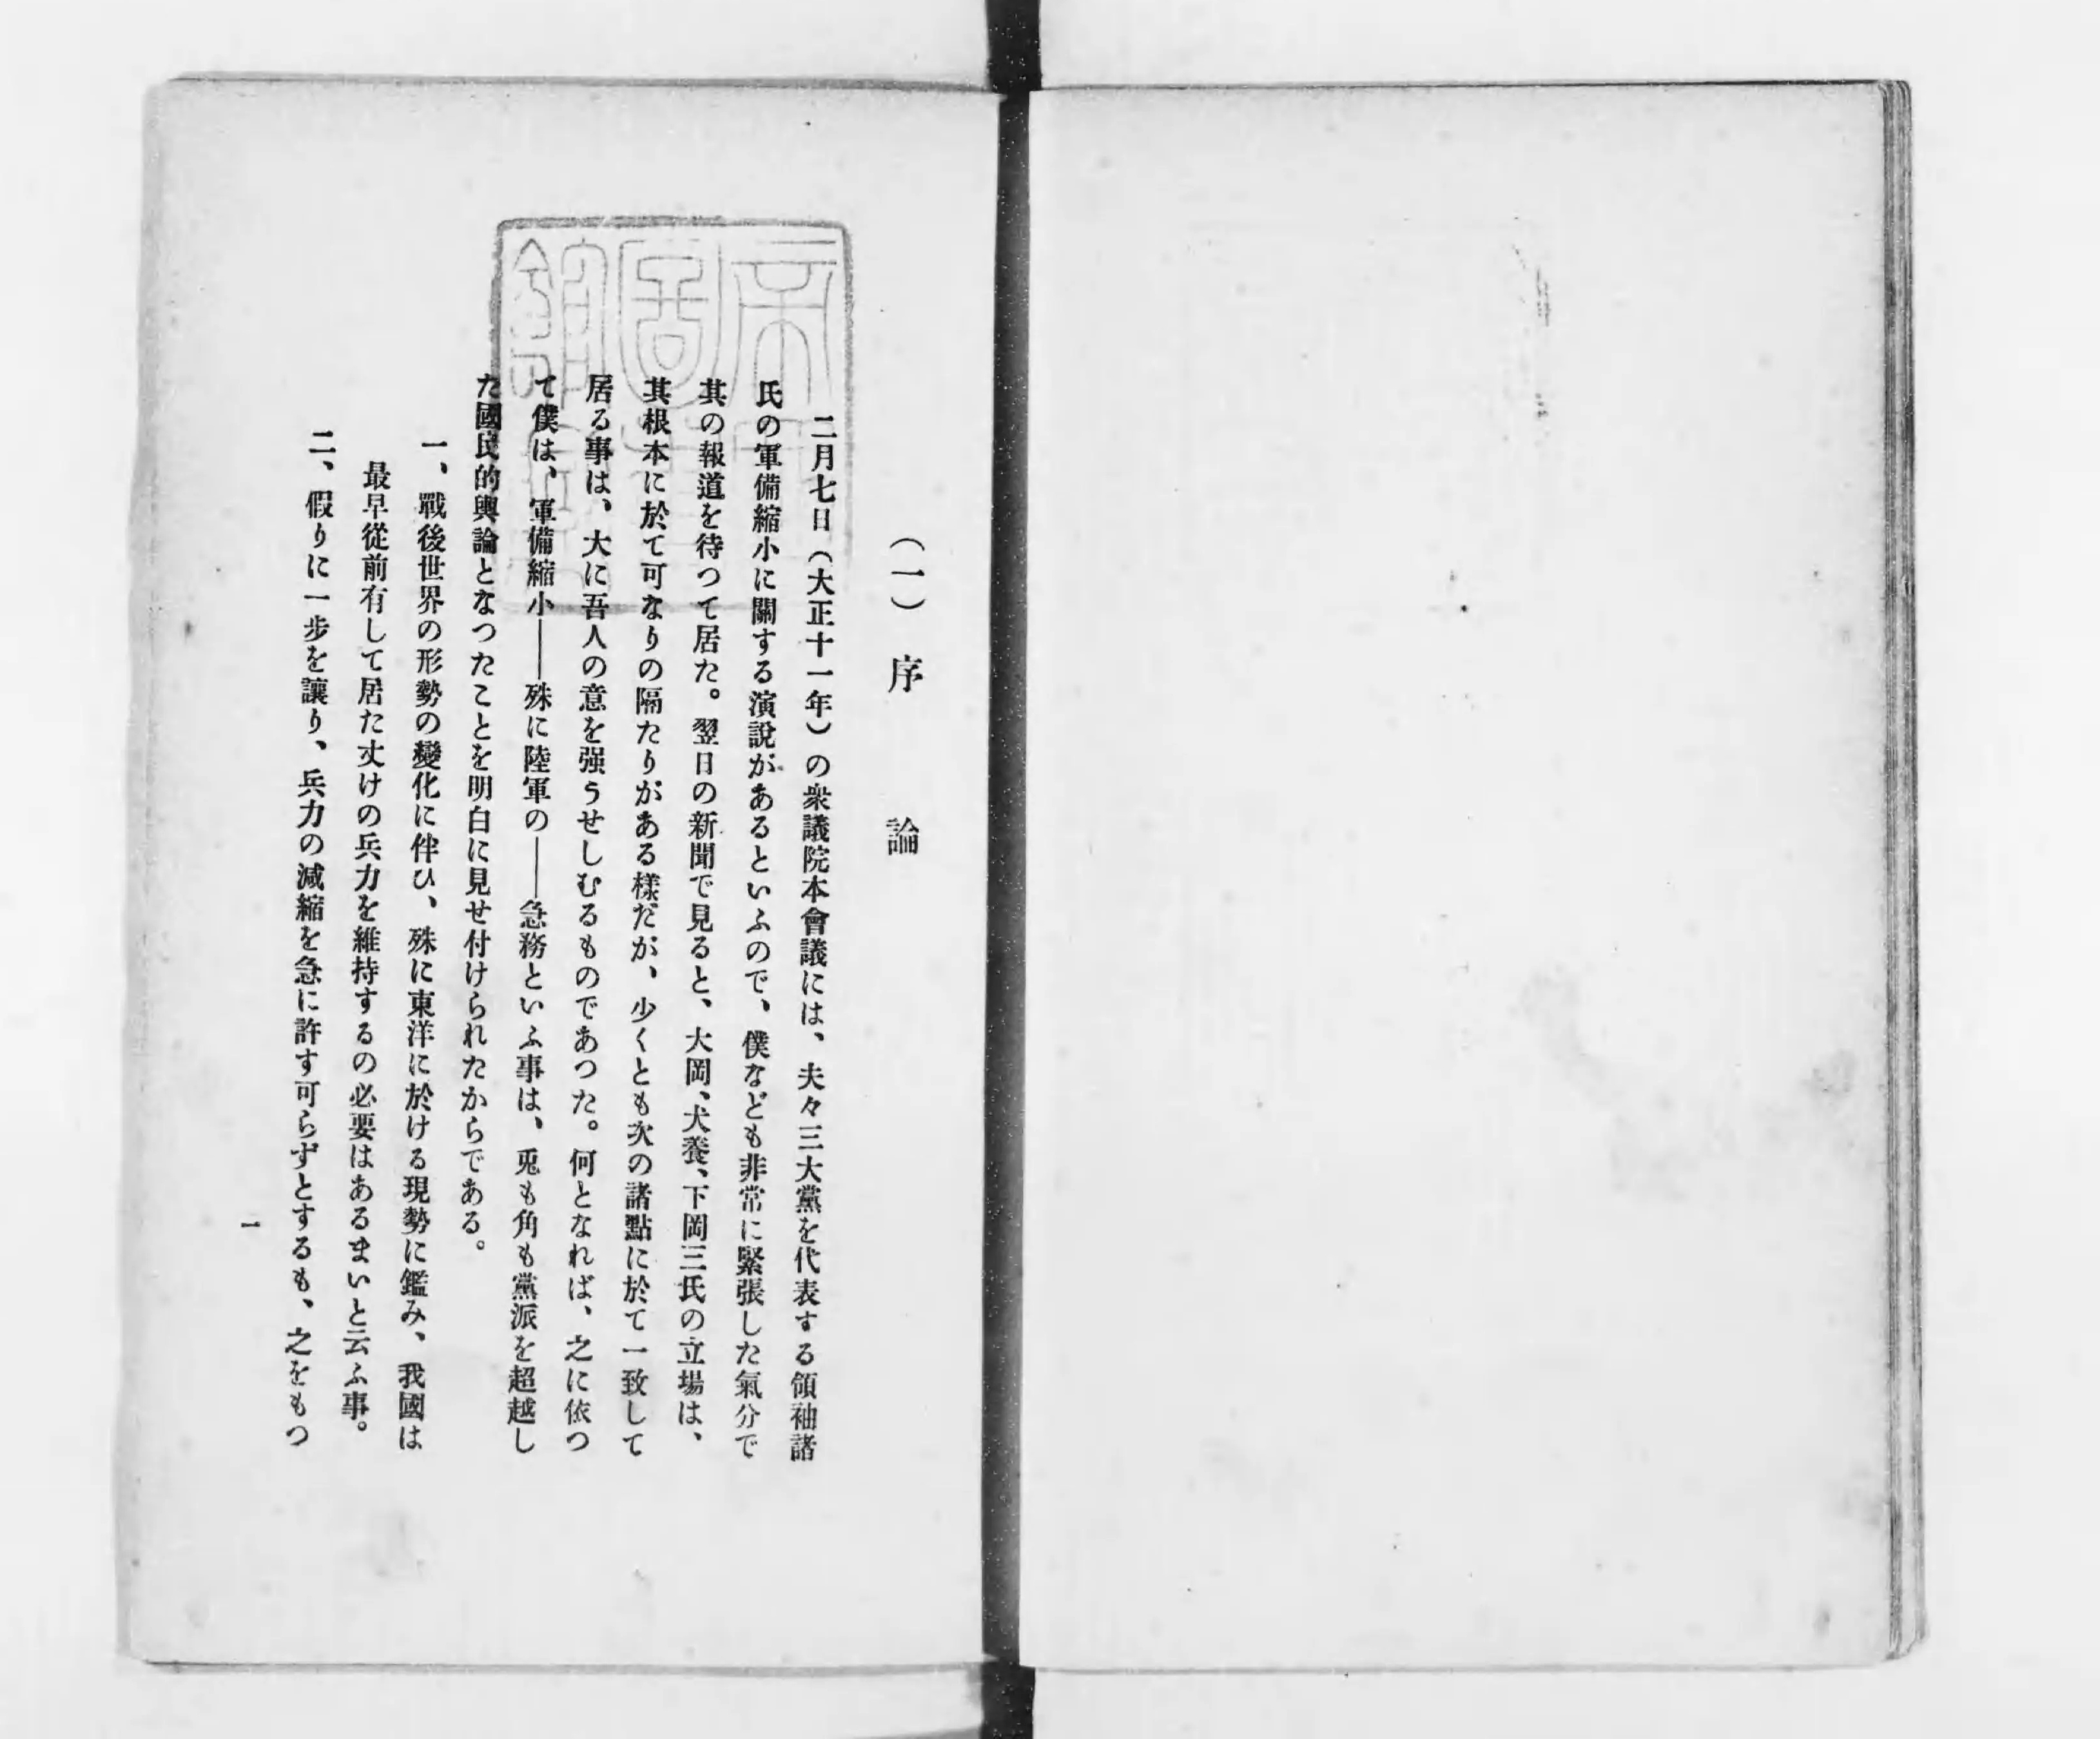 （一）序論
二月七日（大正十一年）の衆議院本會議には、夫々三大黨を代表する領袖諸
氏の軍備縮小に關する演說があるといふので、僕なども非常に緊張した氣分で
其の報道を待つて居た。翌日の新聞で見ると、大岡、犬養、下岡三氏の立場は、
其根本に於て可なりの隔たりがある樣だが、少くとも次の諸點に於て一致して
居る事は、大に吾人の意を强うせしむるものであつた。何となれば、之に依つ
て僕は、軍備縮小――殊に陸軍の――急務といふ事は、兎も角も黨派を超越し
た國民的輿論となつたことを明白に見せ付けられたからである。
一、戰後世界の形勢の變化に伴ひ、殊に東洋に於ける現勢に鑑み、我國は
最早從前有して居た丈けの兵力を維持するの必要はあるまいと云ふ事。
二、假りに一步を讓り、兵力の減縮を急に許す可らずとするも、之をもつ
一